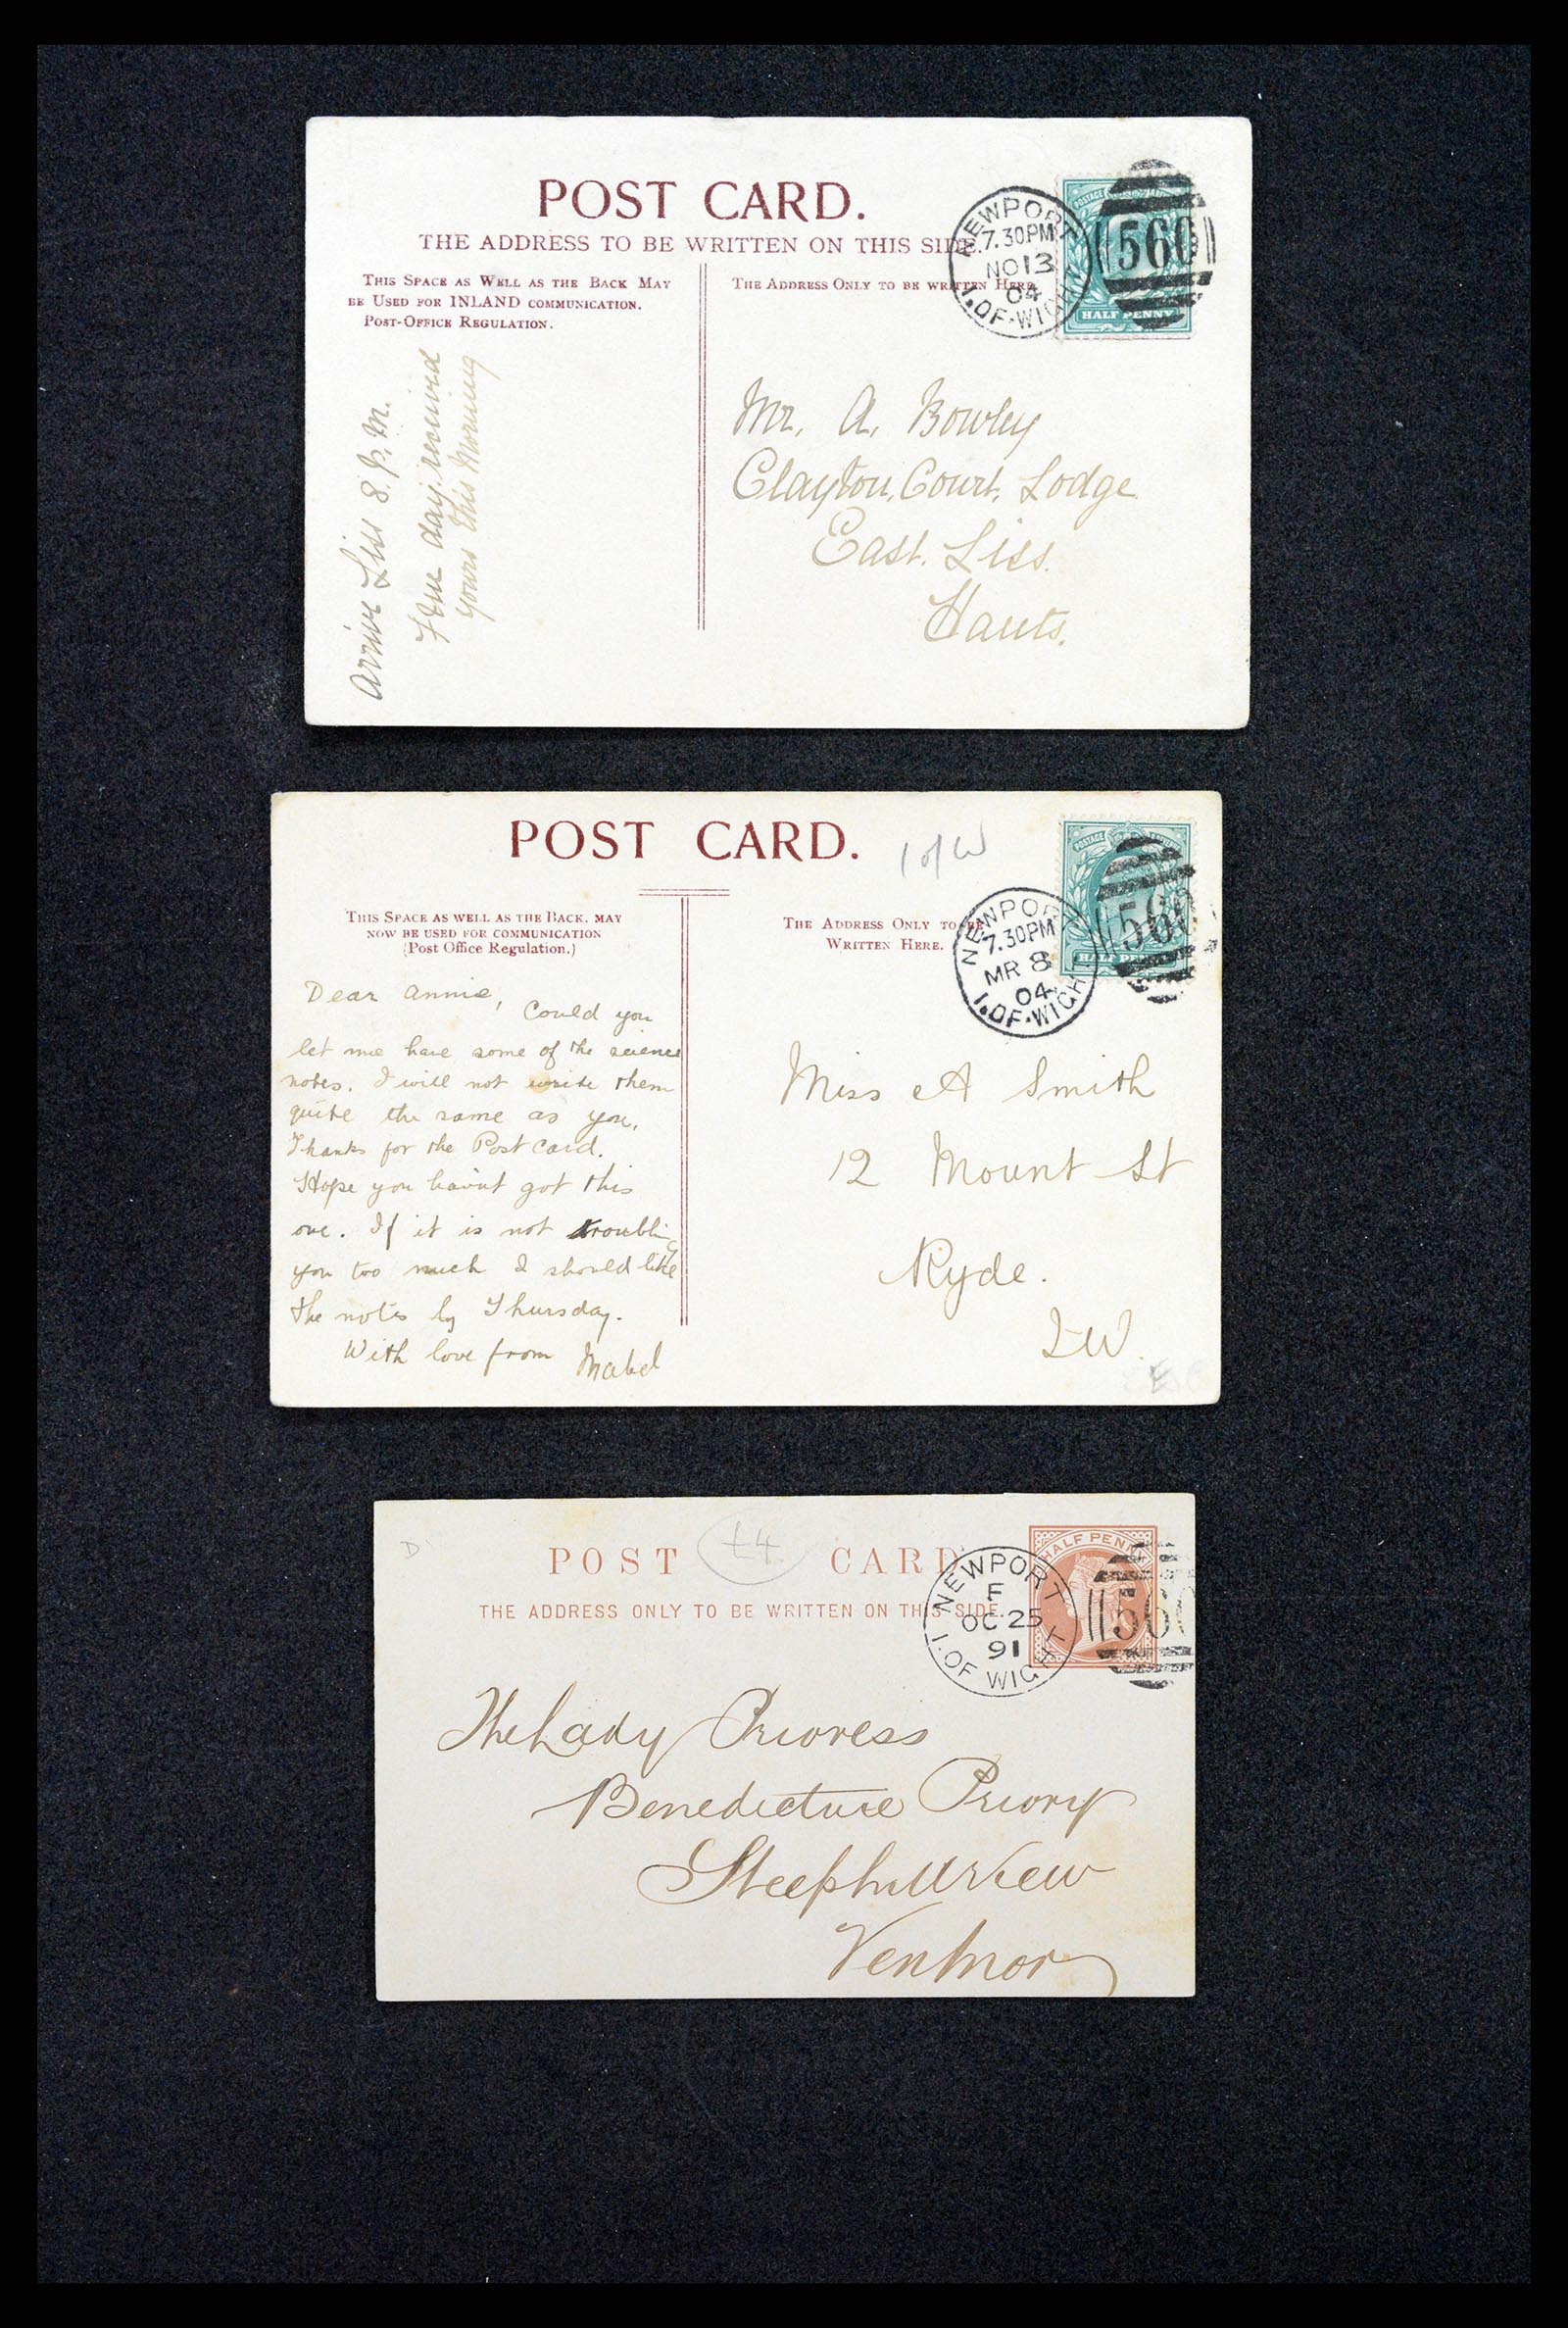 POST CARD.
THE ADDRESS TO BE WRITTEN ON THIS SIDE.
THIS SPACE AS WELL AS THE BACK MAY
BE USED FOR INLAND COMMUNICATION.
POST-OFFICE REGULATION.
THE ADDRESS ONLY TO BE WRITTEN HERE.
NEWPORT
7.30PM
NO 13
04
I.OF.WIGHT
560
POSTAGE
HALF PENNY
Mr. A. Bowley
Clayton Court Lodge
East Liss.
Hants.
Arrive Liss 8. P.M.
Fine day. received
yours this Morning
POST CARD.
I of W
THIS SPACE AS WELL AS THE BACK, MAY
NOW BE USED FOR COMMUNICATION
(Post Office Regulation.)
THE ADDRESS ONLY TO BE
WRITTEN HERE.
NEWPORT
7.30PM
MR 8
04
I.OF.WIGHT
560
POSTAGE
HALF PENNY
Dear Annie,
Could you
let me have some of the science
notes. I will not write them
quite the same as you.
Thanks for the Post card.
Hope you havint got this
one. If it is not troubling
you too much I should like
the notes by Thursday.
With love from Mabel
Miss A Smith
12 Mount St
Ryde.
I.W.
E
D
£4
POST CARD
THE ADDRESS ONLY TO BE WRITTEN ON THIS SIDE.
HALF PENNY
NEWPORT
F
OC 25
91
I.OF WIGHT
560
The Lady Prioress
Benedictine Priory
Steephill View
Ventnor